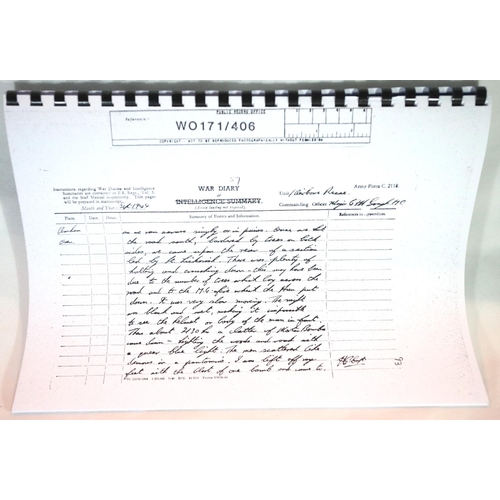 PUBLIC RECORD OFFICE
Reference:-
WO171/406
COPYRIGHT - NOT TO BE REPRODUCED PHOTOGRAPHICALLY WITHOUT PERMISSION
Instructions regarding War Diaries and Intelligence
Summaries are contained in F.S. Regs., Vol. I.
and the Staff Manual respectively. Title pages
will be prepared in manuscript.
WAR DIARY
or
INTELLIGENCE SUMMARY.
(Erase heading not required).
Army Form C. 2118
Unit
Commanding Officer Major
Month and Year
Place
Date
Hour
Summary of Events and Information
References to Appendices
on we ran across singly or in pairs. Once we hit
the road south, bordered by trees on both
sides, we came upon the rear of a section
led by Lt. There was plenty of
halting and crouching down - this may have been
due to the number of trees which lay across the
road and to the M.G. fire which the Hun put
down. It was very slow moving. The night
was black and wet, making it impossible
to see the helmet or body of the man in front.
Then about 2130 hrs a clatter of Mortar Bombs
came down - lighting the woods and road with
a queer blue light. The men scattered like
demons in a pantomime. I was left off my
feet with the blast of one bomb and came to
93